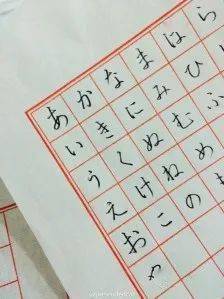 あかなまはら
いきにみひ
うくぬむふ
えけねめ
おこのも
や